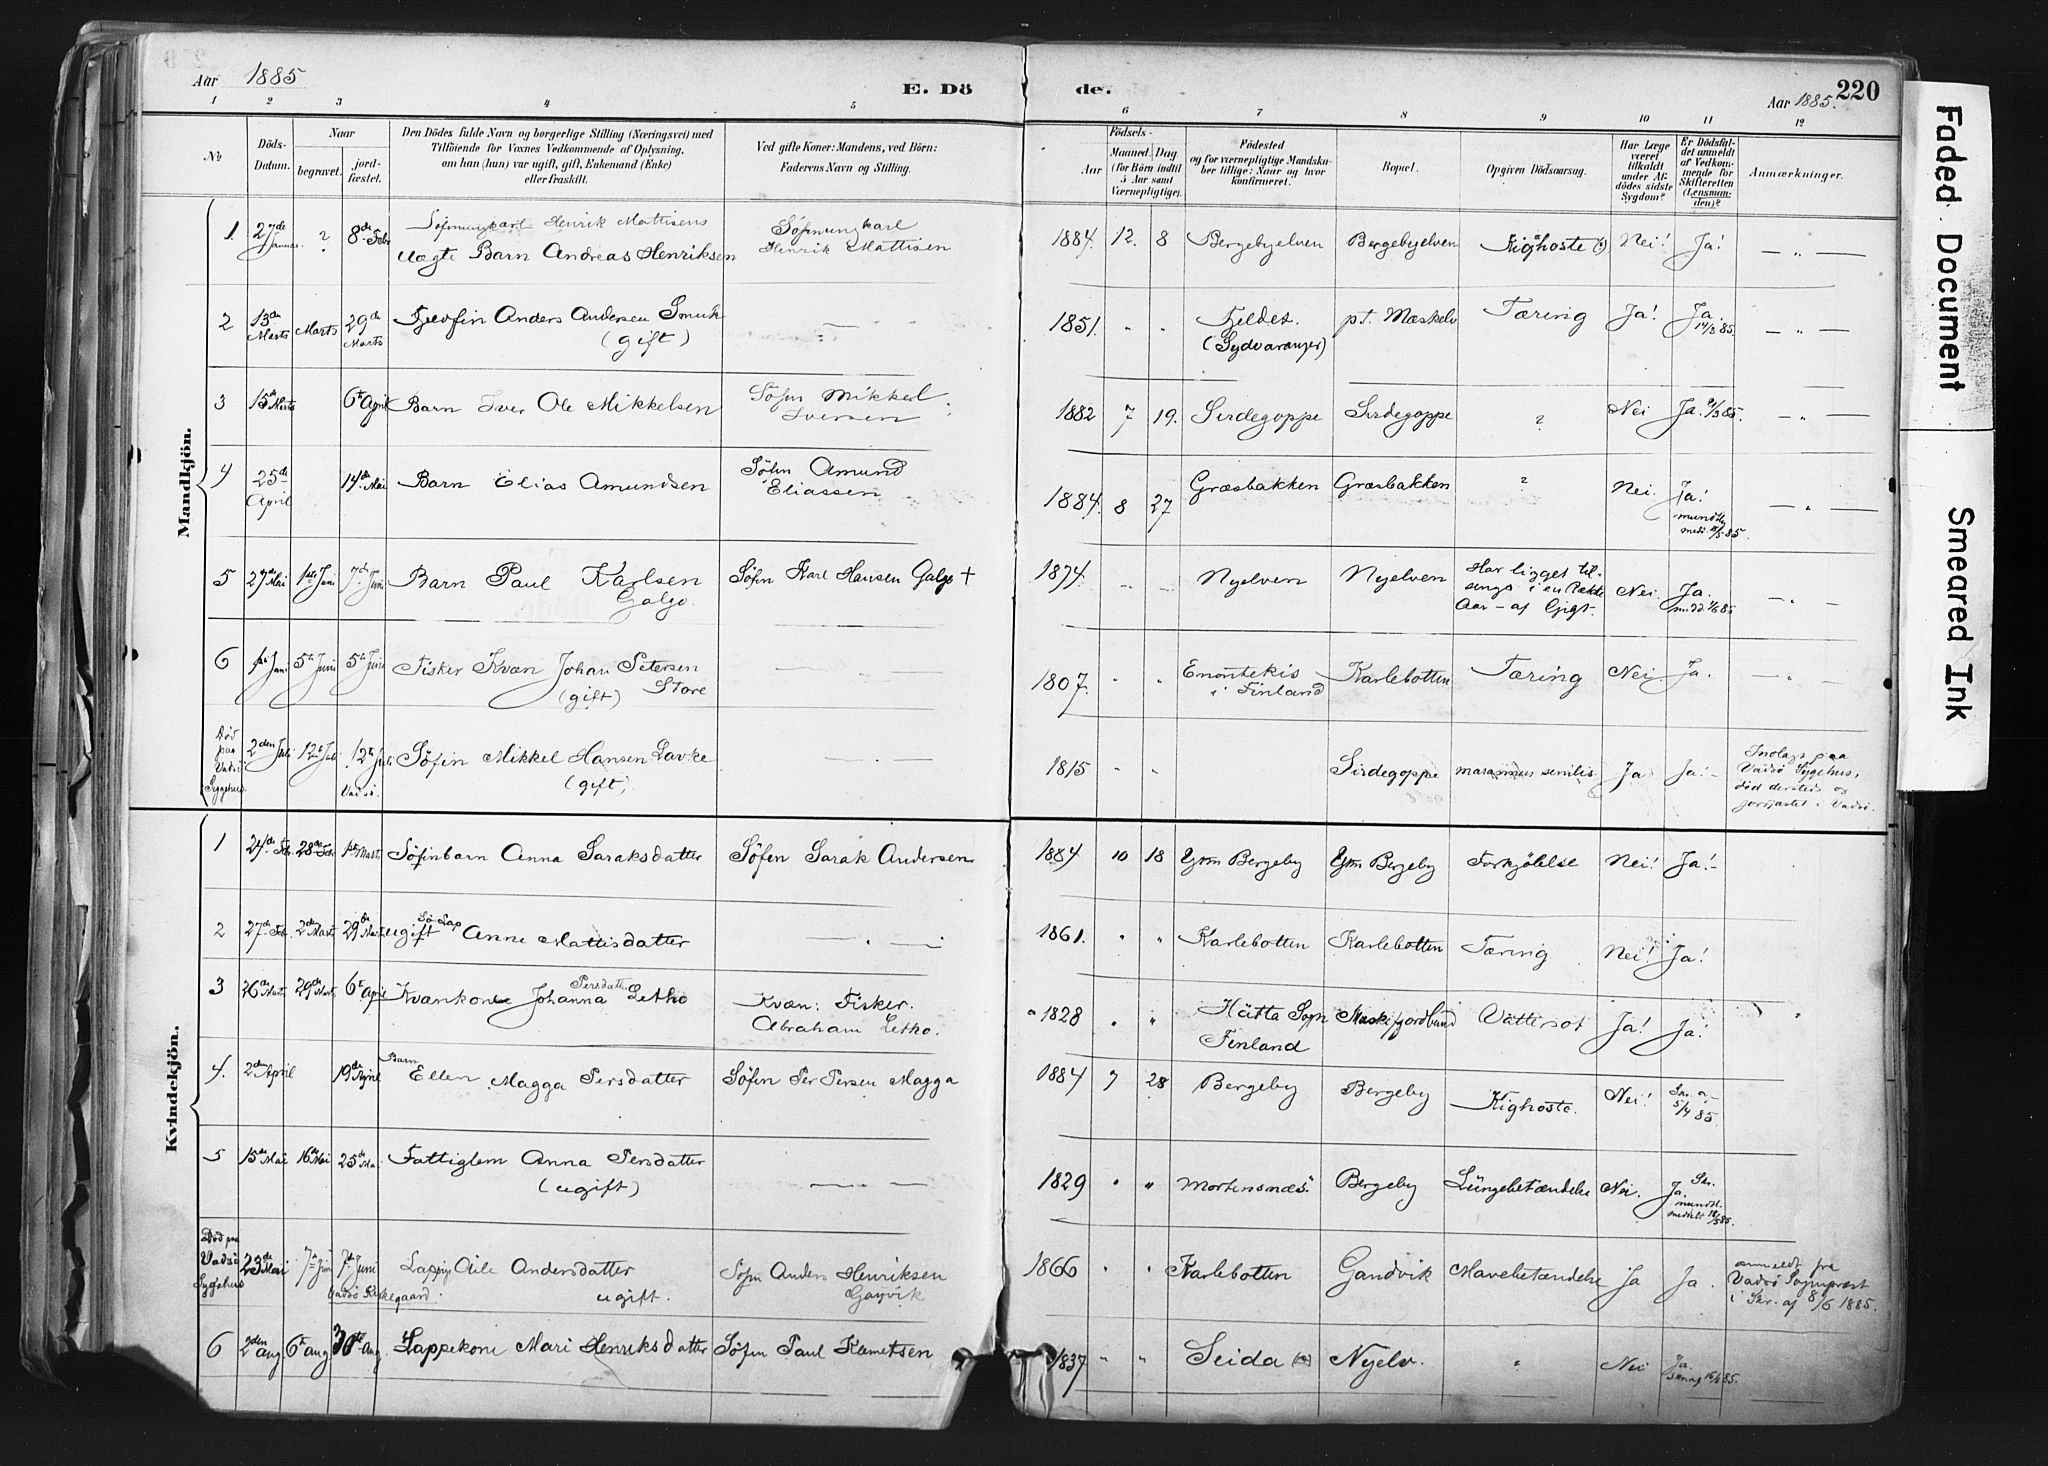 Aar 1885
E. Dö
de.
Aar 1885.
220
1 2 3 4 5 6 7 8 9 10 11 12
No
Döds-
Datum.
Naar
begravet.
jord-
fæstet.
Den Dödes fulde Navn og borgerlige Stilling (Næringsvei) med
Tilföiende for Voxnes Vedkommende af Oplysning,
om han (hun) var ugift, gift, Enkemand (Enke)
eller fraskilt.
Ved gifte Koner: Mandens, ved Börn:
Faderens Navn og Stilling.
Födsels-
Aar
Maaned. Dag
(for Börn indtil
5 Aar samt
Værnepligtige).
Födested
og for værnepligtige Mandska-
ber tillige: Naar og hvor
konfirmeret.
Bopæl.
Opgiven Dödsaarsag.
Har Læge
været
tilkaldt
under Af-
dödes sidste
Sygdom?
Er Dödsfal-
det anmeldt
af Vedkom-
mende for
Skifteretten
(Lensman-
den)?
Anmærkninger.
Mandkjön.
1. 27de Januar. ? 8de Febr
Henrik Mattisens
uægte Barn Andreas Henriksen
Henrik Mattisen
1884. 12. 8 Bergebyelven Bergebyelven Kighoste (?) Nei! Ja! — „ —
2 13de Marts Marts 29de Marts Fjeldfin Anders Andersen Smuk
(gift)
1851. " " Fjeldet.
(Sydvaranger)
pt. Mæskelv Tæring Ja! Ja. 14/3 85. — „ —
3 15de Marts 6te April Barn Iver Ole Mikkelsen Söfin Mikkel
Iversen
1882 7 19. Sirdegoppe Sirdegoppe ? Nei Ja. 2/3 85. — „ —
4 25de April 14de Mai Barn Elias Amundsen Söfin Amund
Eliassen
1884. 8 27 Græsbakken Græsbakken ? Nei. Ja!
— „ —
5 27de Mai 1ste Juni 7de Juni Barn Paul Karlsen
Galgo.
Söfin Karl Hansen Galgo +
1874 Nyelven Nyelven Har ligget til-
sengs i en Række
Aar — af Gigt. Nei. Ja. — „ —
6 1ste Juni 5te Juni 5te Juni Fisker Kvæn Johan Petersen
Store
(gift)
1807. " " Enontekis
i Finland
Karlebotten Tæring Nei. Ja. — „ —
Död
paa
Vadsö
Sygehus
2den Juli 12te Juli 12te Juli
Vadsö.
Söfin Mikkel Hansen Lavke
(gift)
1815 " " Sirdegoppe marasmus senilis. Ja Ja!
Indlagt paa
Vadsö Sygehus,
död dersteds og
jordfæstet i Vadsö.
Kvindekjön.
1 24de Febr. 28de Febr 1ste Marts Söfinbarn Anna Saraksdatter Söfin Sarak Andersen
1884 10 18 Ytre Bergeby Ytre Bergeby Forkjölelse Nei! Ja!
2 27de Febr. 2den Marts 29de Marts ugift Sö Lap Anne Mattisdatter — „ —
1861. " " Karlebotten Karlebotten Tæring Nei! Ja!
3 26de Marts 29de Marts 6te April Kvænkone Johanna Persdatter Letho Kvæn: Fisker.
Abraham Letho.
1828 " " Hätta Sogn
Finland
Mæskefjordbund Vattersot Ja! Ja!
4. 2den April 19de April Barn
Ellen Magga Persdatter Söfin Per Persen Magga
1884 7 28 Bergeby Bergeby Kighoste. Nei! Skr. af
5/4 85.
5 15de Mai 16de Mai 25de Mai Fattiglem Anna Persdatter
(ugift)
1829 " " Mortensnæs. Bergeby Lungebetændelse Nei. Ja. Skr.
Död paa
Vadsö
Sygehus
23de Mai 7de Juni 7de Juni
Vadsö Kirkegaard.
Lappige Aile Andersdatter
ugift.
Söfin Anders Henriksen
1866 " " Karlebotten Gandvik Mavebetændelse Ja Ja.
anmeldt fra
Vadsö Sognepræst
i Skr. af 8/6 1885.
6 2den Aug. 6te Aug 30te Aug. Lappekone Mari Henriksdatter Söfin Paul Klemetsen
1837 " " Seida Nyelv. " Nei Ja.
Faded Document
Smeared Ink